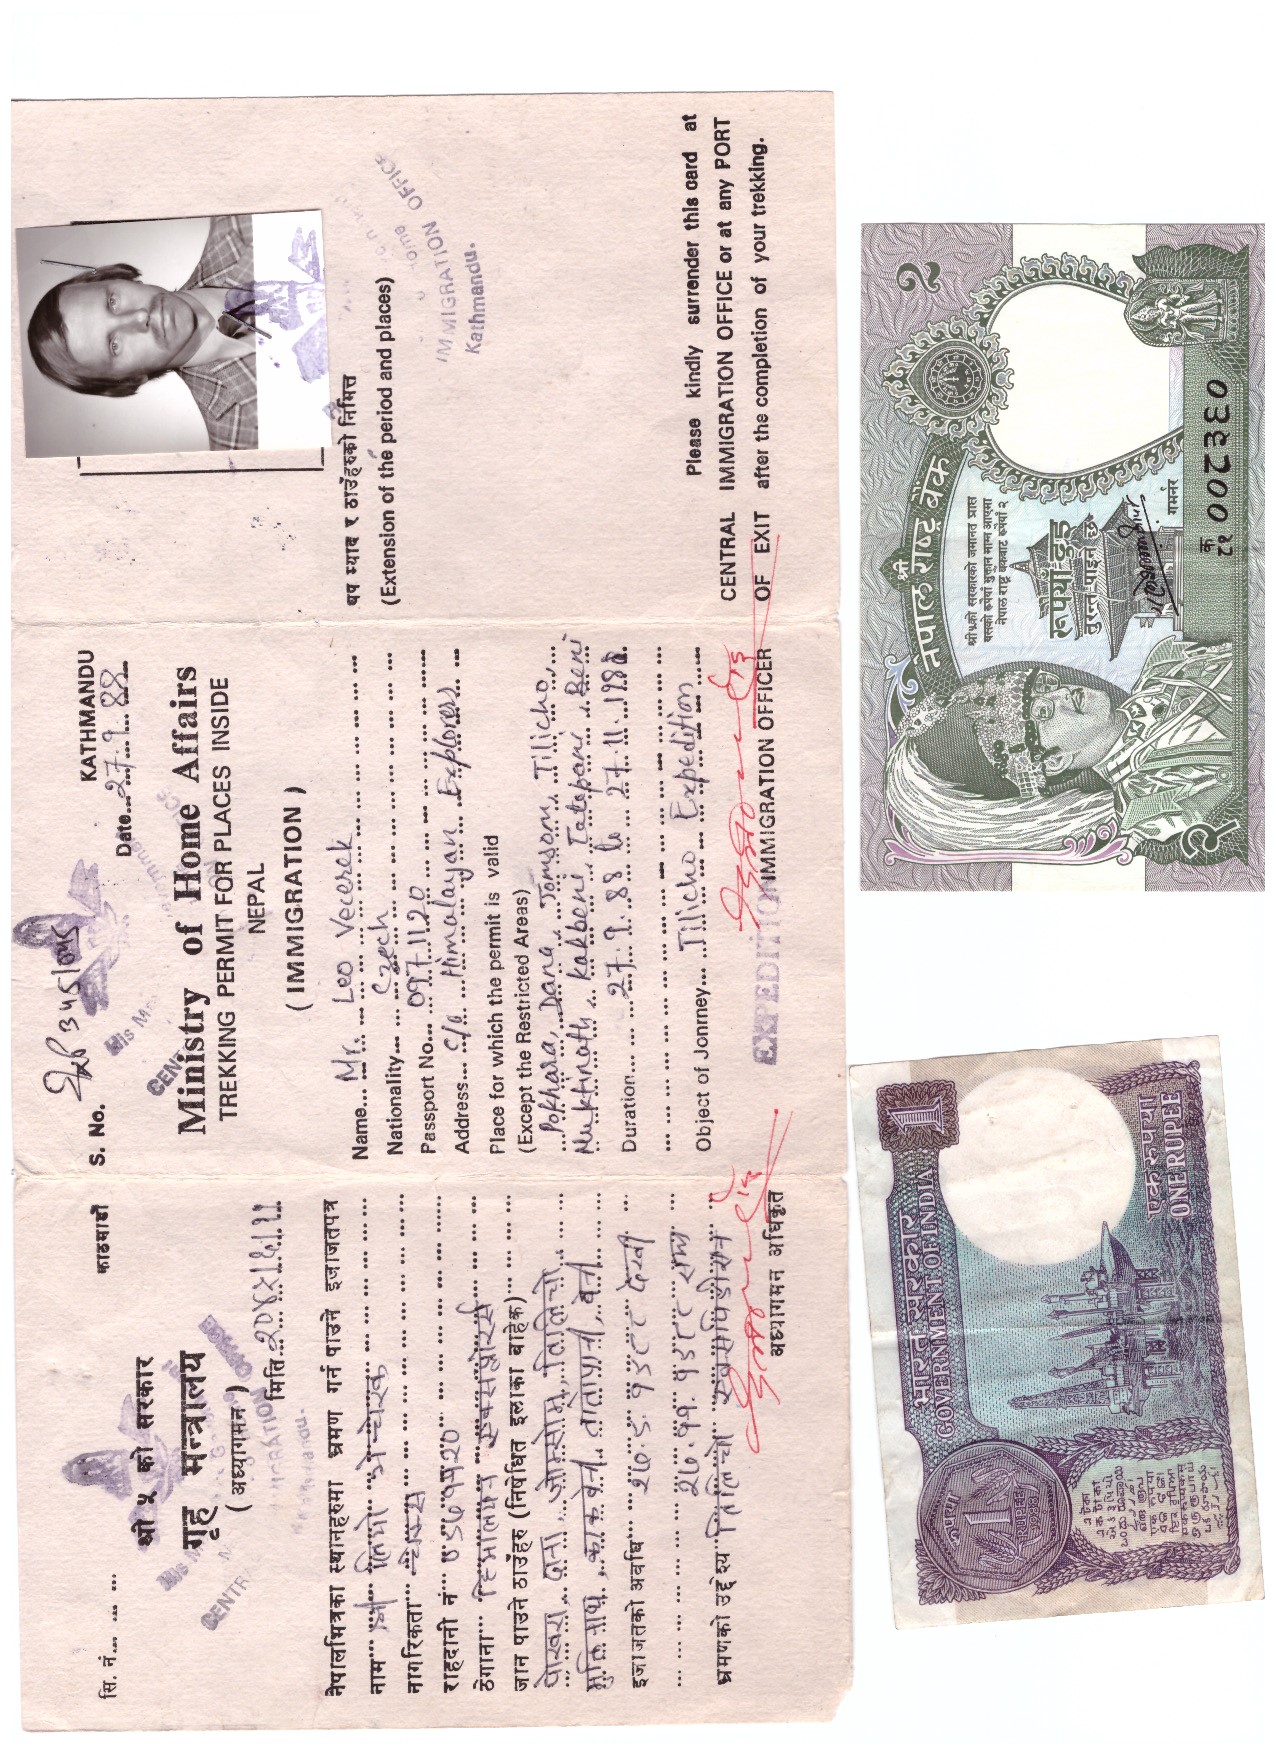 सि. नं... ... ...
काठमाडौं
श्री ५ को सरकार
गृह मन्त्रालय
( अध्यागमन )
मिति २०४५|६|११
नेपालभित्रका स्थानहरुमा भ्रमण गर्न पाउने इजाजतपत्र
नाम श्री लियो भेचेरेक
नागरिकता चेक्स
राहदानी नं ०९७११२०
ठेगाना हिमालयन एक्सप्लोरर्स
जान पाउने ठाउँहरु (निषेधित इलाका बाहेक)
पोखरा, दाना, जोम्सोम, तिलिचो
मुक्तिनाथ, काकवेनी, तातोपानी, वेनी
इजाजतको अवधि २७.९.१९८८ देखी
२७.११.१९८८ सम्म
भ्रमणको उद्देश्य तिलिचो एक्सपिडीसन
अध्यागमन अधिकृत
S. No. 345/045
KATHMANDU
Date...27.9.88
Ministry of Home Affairs
TREKKING PERMIT FOR PLACES INSIDE
NEPAL
( IMMIGRATION )
Name... Mr. Leo Vecerek
Nationality... Czech
Passport No... 0971120
Address... c/o Himalayan Explorers
Place for which the permit is valid
(Except the Restricted Areas)
Pokhara, Dana, Jomsom, Tilicho,
Muktinath, Kakbeni, Tatopani, Beni
Duration... 27.9.88 to 27.11.1988.
Object of Jonrney... Tilicho Expedition
EXPEDITION
IMMIGRATION OFFICER
थप म्याद र ठाउँहरुको निमित्त
(Extension of the period and places)
Home
IMMIGRATION OFFICE
Kathmandu.
Please kindly surrender this card at
CENTRAL IMMIGRATION OFFICE or at any PORT
OF EXIT after the completion of your trekking.
भारत सरकार
GOVERNMENT OF INDIA
1
रुपया
1
RUPEE
1988
एक रुपया
ONE RUPEE
श्री
नेपाल राष्ट्र बैंक
2
श्री ५को सरकारको जमानत प्राप्त
यसको रुपैयाँ भुक्तान माग्न आएमा
नेपाल राष्ट्र बैंकबाट रुपैयाँ २
रूपैयाँ दुइ
तुरन्त पाइने छ
गभर्नर
२
क
८१ ००८३६०